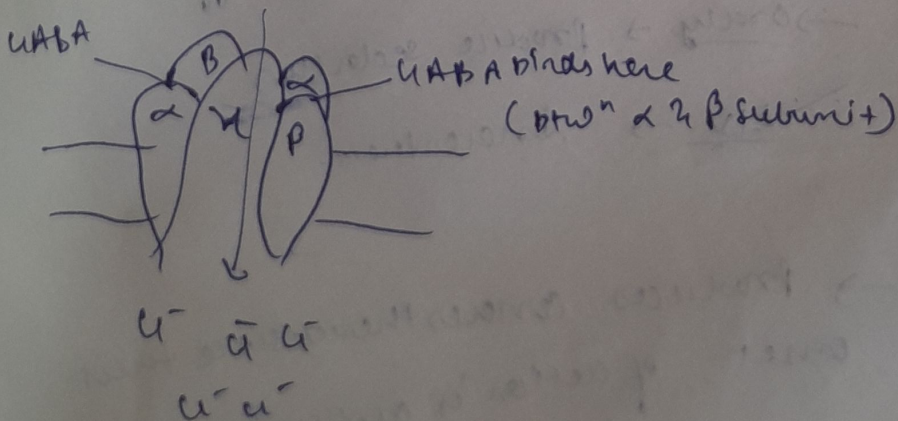 GABA
B
α
α
γ
β
GABA binds here
(btwⁿ α & β subunit)
Cl⁻
Cl⁻ Cl⁻
Cl⁻ Cl⁻